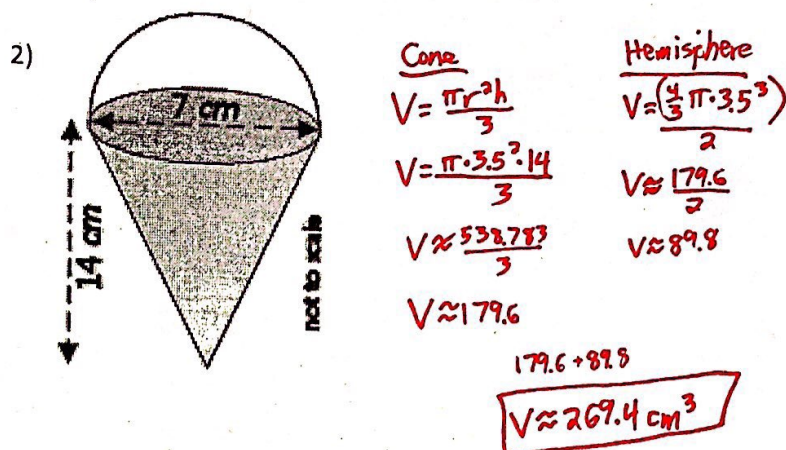 2)
7 cm
14 cm
not to scale
Cone
V = πr²h / 3
V = π·3.5²·14 / 3
V ≈ 538.783 / 3
V ≈ 179.6
Hemisphere
V = (4/3 π·3.5³) / 2
V ≈ 179.6 / 2
V ≈ 89.8
179.6 + 89.8
V ≈ 269.4 cm³